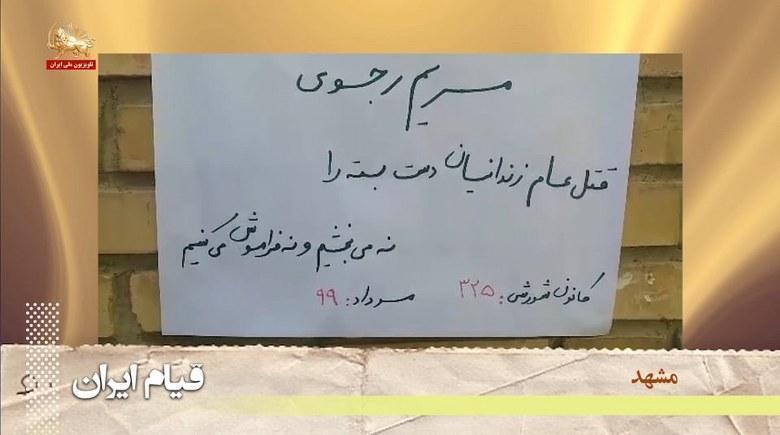 تلویزیون ملی ایران
مریم رجوی
قتل عام زندانیان دست بسته را
نه می بخشیم و نه فراموش می کنیم
کانون شورشی: ۳۲۵
مرداد: ۹۹
مشهد
قیام ایران